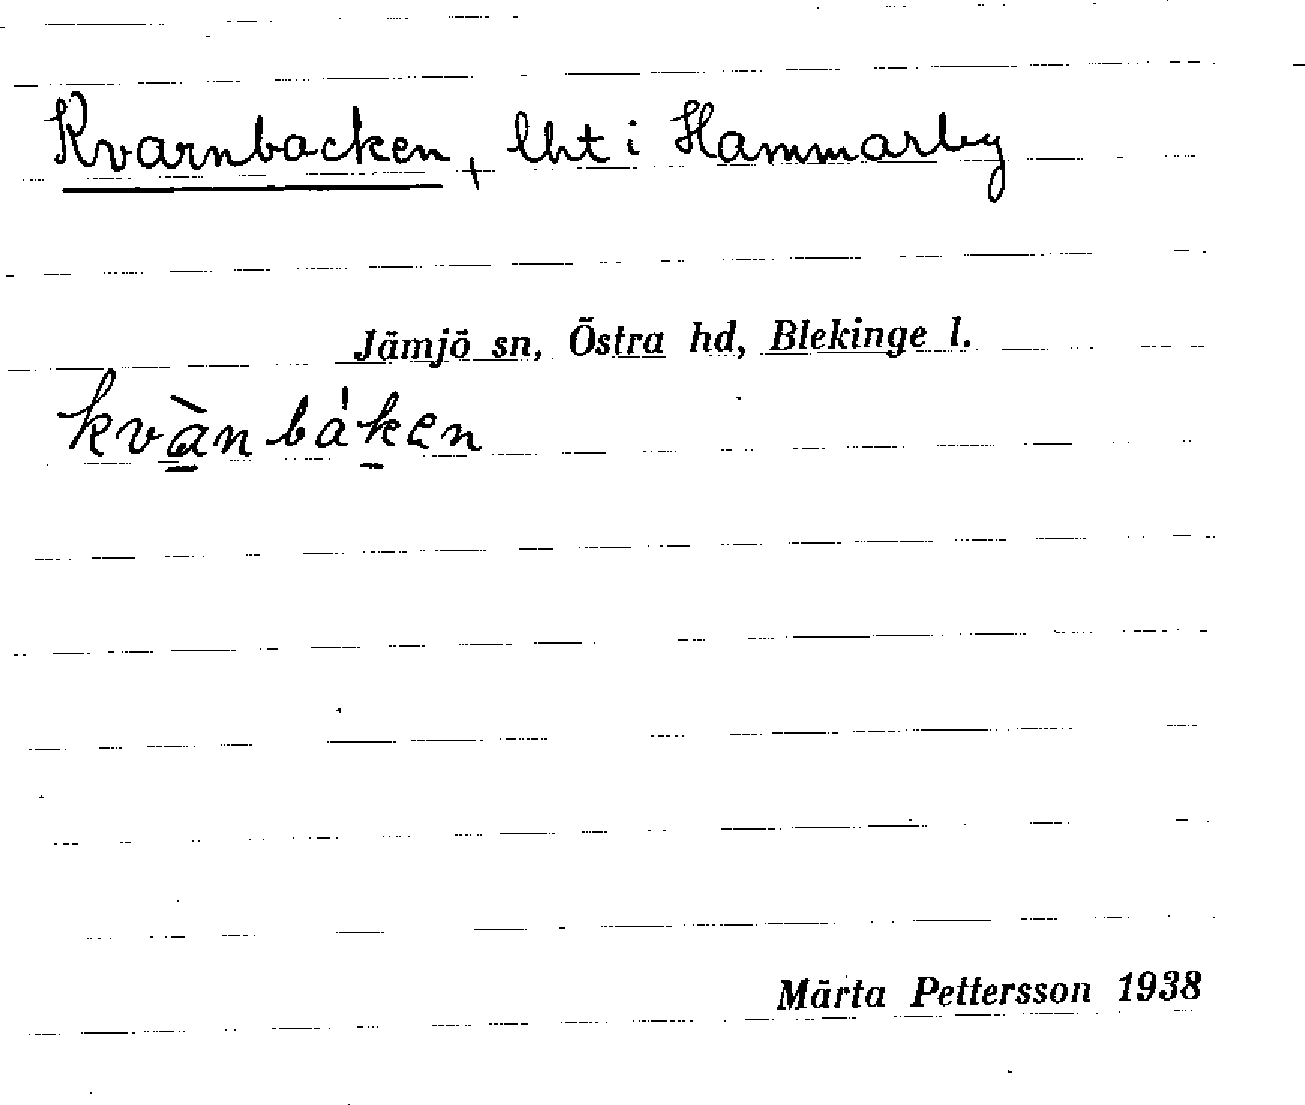 Kvarnbacken, lht i Hammarby
Jämjö sn, Östra hd, Blekinge l.
kvà̠nbák̠en
Märta Pettersson 1938